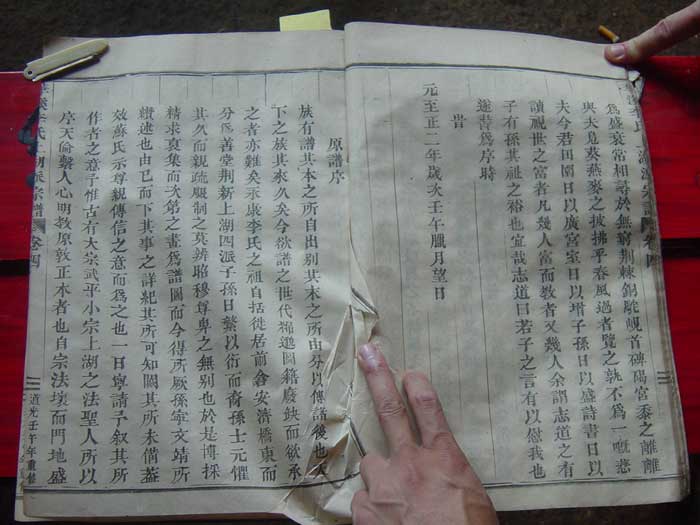 爲盛衰常相尋於無窮荆棘銅駝峴首碑碣宫黍之離離
與夫兎葵燕麥之披拂乎春風過者覽之孰不爲一嘅悲
夫今若田園日以廣宫室日以增子孫日以盛詩書日以
讀視世之富者凡幾人富而教者又幾人余謂志道之有
子有孫其祖之裕也宜哉志道曰若子之言有以儆我也
遂書爲序時
昔
元至正二年歲次壬午臘月望日
原譜序
族有譜其本之所自出别其末之所由分以傳諸後也夫天
下之族其來久矣今欲譜之世代綿邈圖籍廢缺而欲承
之者亦難矣永康李氏之祖自括徙居前倉安濟橋東而
分爲善堂荆新上湖四派子孫日繁以衍而裔孫士元懼
其久而親疏服制之莫辨昭穆尊卑之無别也於是博採
精求裒集而次第之畫爲譜圖而今得所厥孫寧文靖所
續述也由已而下其事之詳紀其所可知闕其所未備蓋
效蘇氏示尊親傳信之意而爲之也一日寧請予叙其所
作者之意予惟古有大宗武乎小宗上湖之法聖人所以
序天倫繫人心明教原敦正本者也自宗法壞而門地盛
李氏上湖派宗譜
卷四
道光壬午年重修